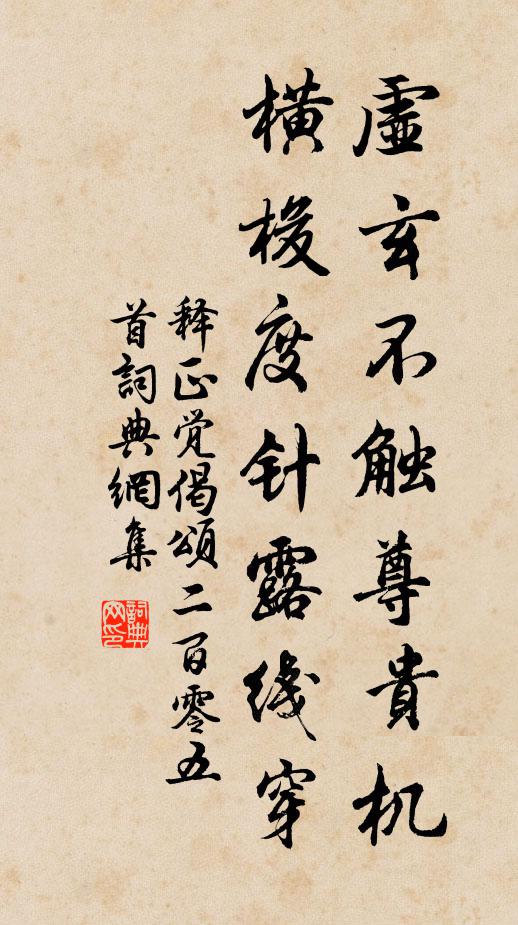 虚玄不触尊貴机
横梭度针露线穿
释正觉偈頌二百零五
首詞典網集
詞典网印